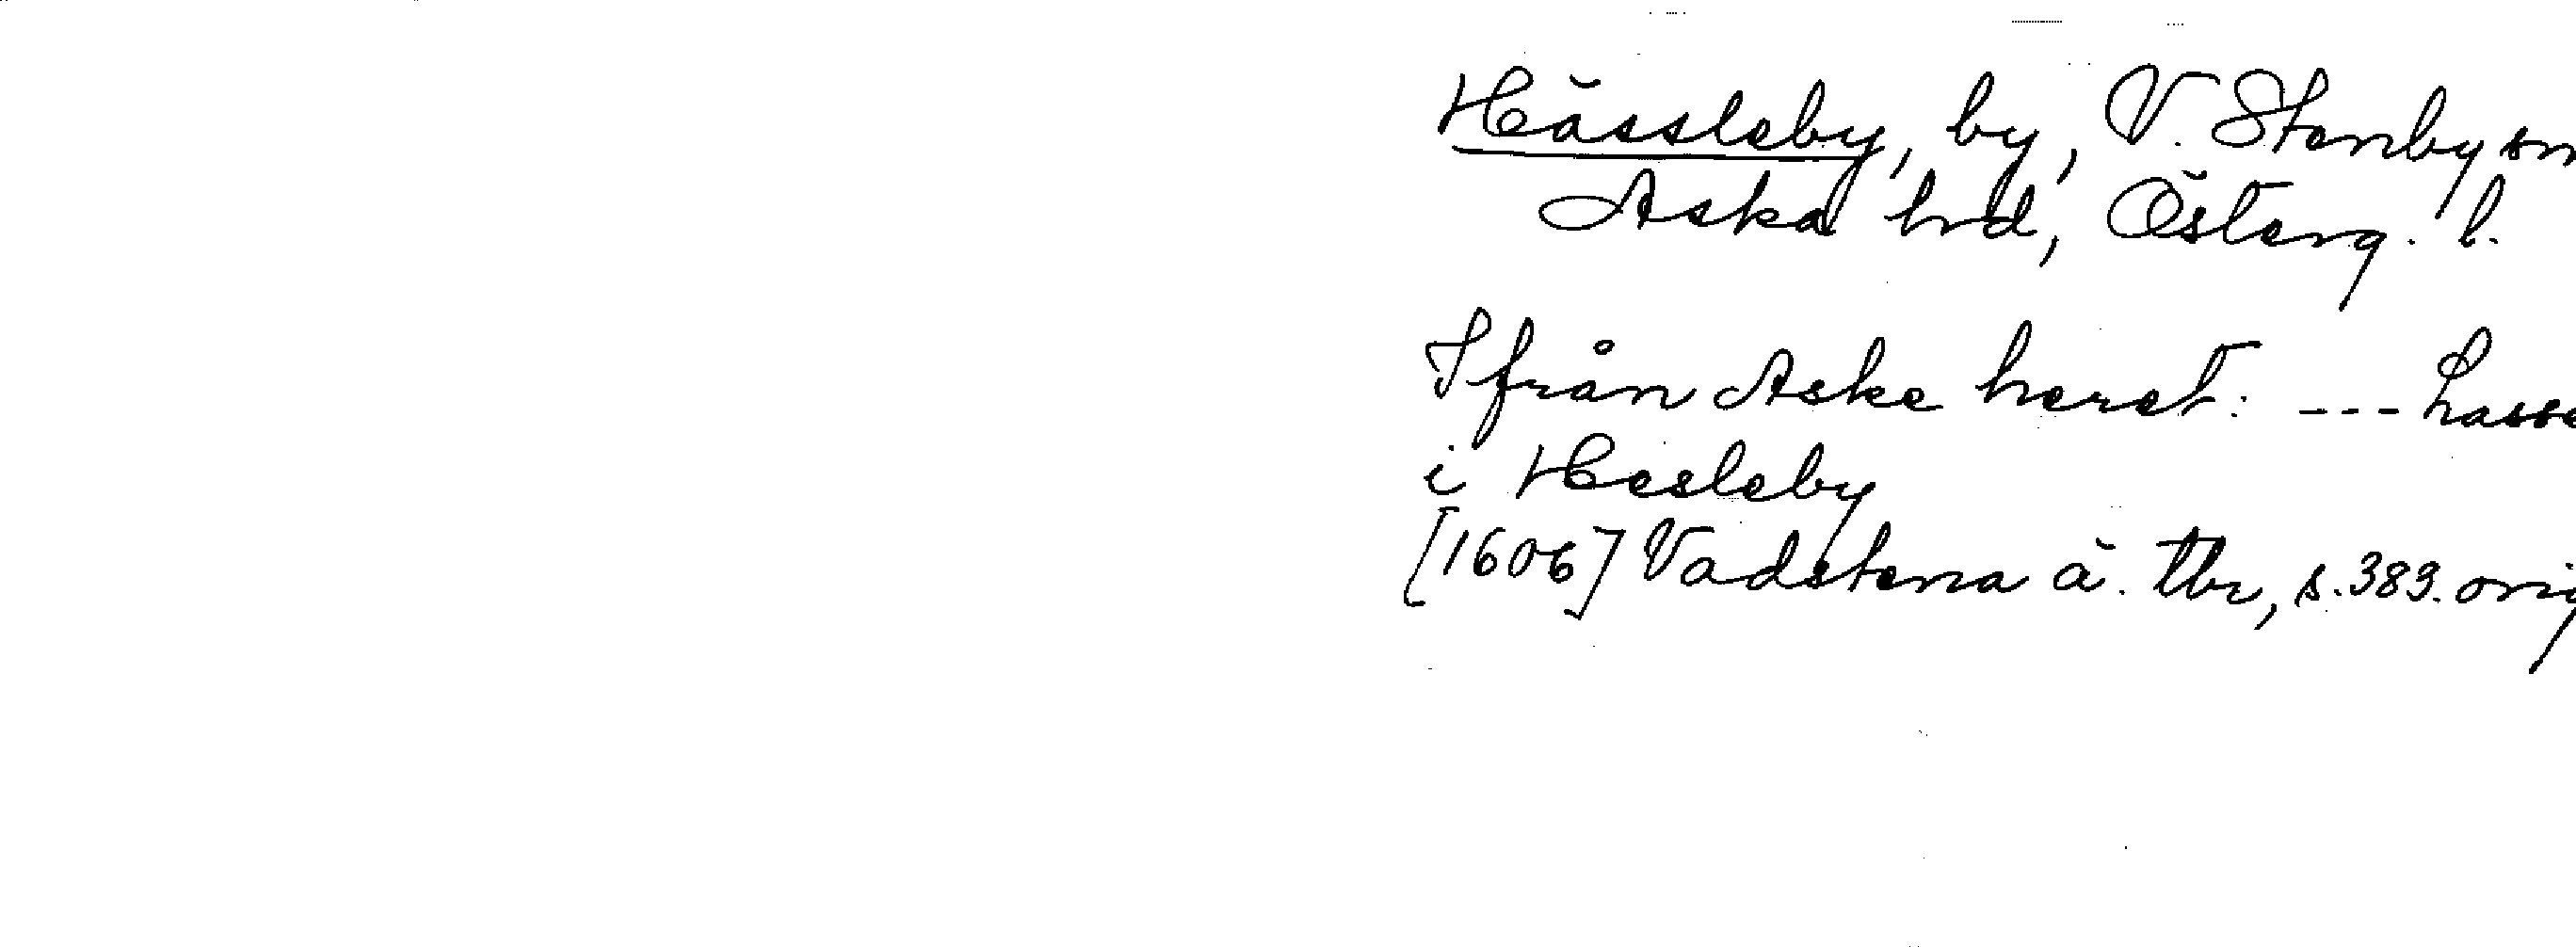 Hässleby, by, V. Stenby sn
Aska hd, Österg. l.
Ifrån Aske heret: --- Lasse
i Hesleby
[1606] Vadstena ä. tbr, s. 389. orig